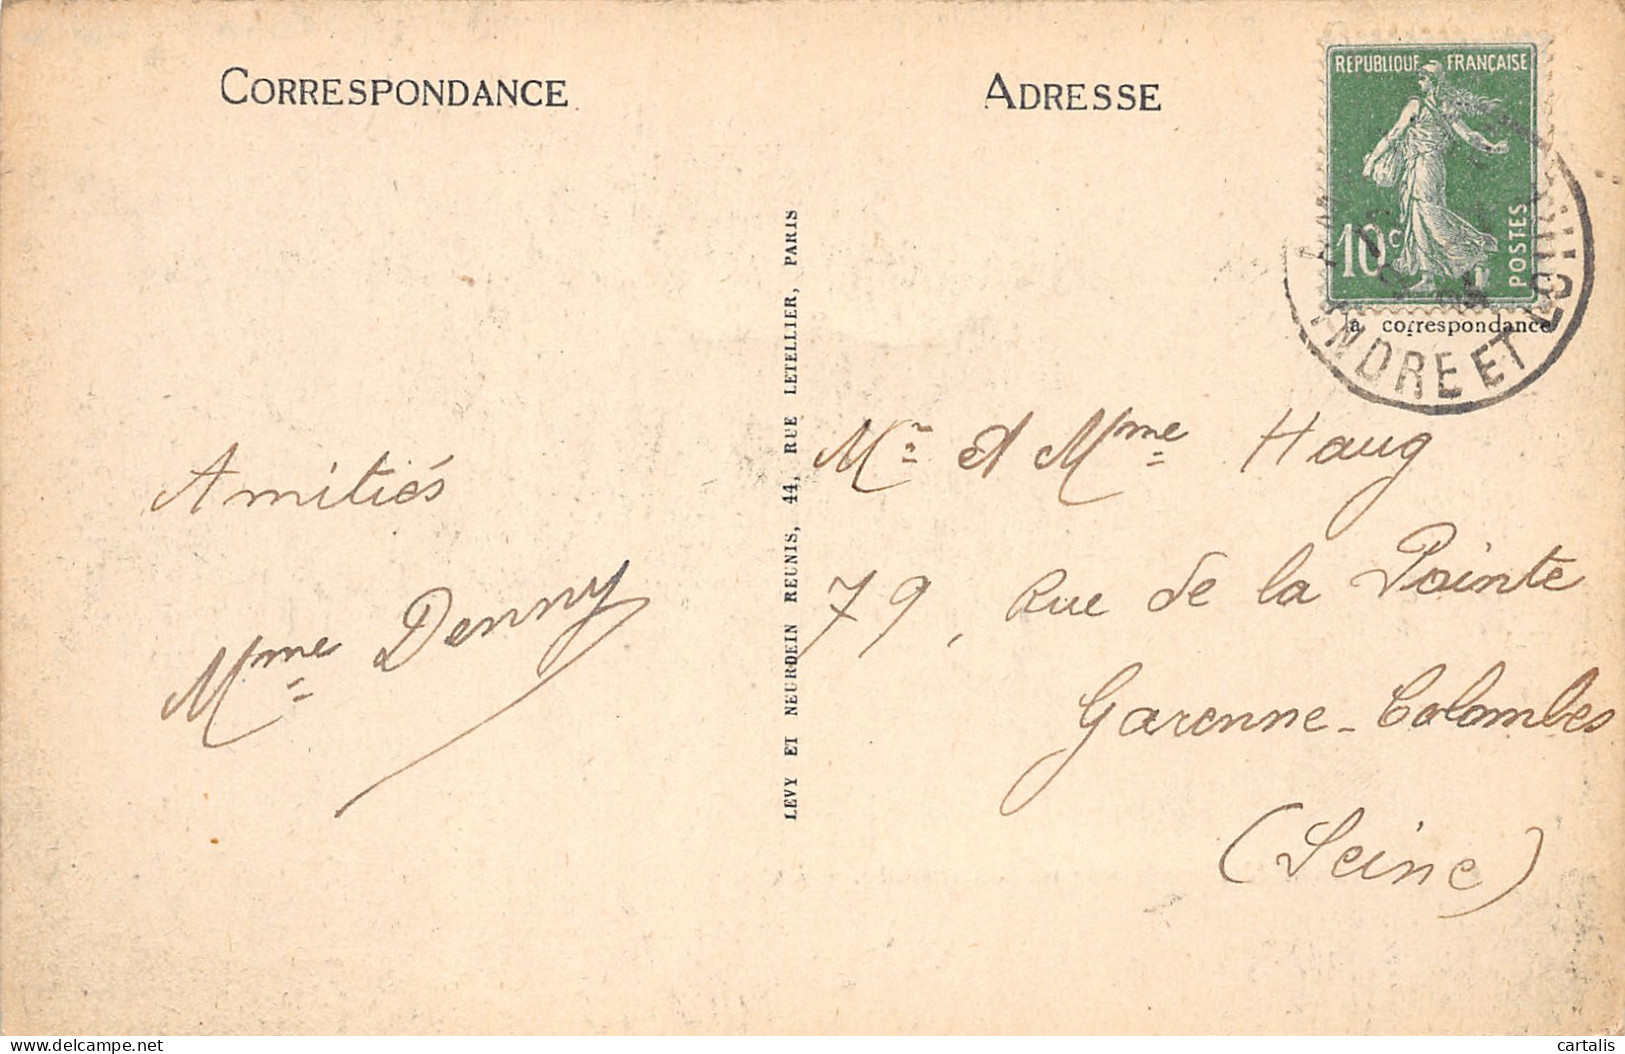 CORRESPONDANCE
ADRESSE
REPUBLIQUE FRANÇAISE
10 c
POSTES
la correspondance
INDRE ET LOIRE
LEVY ET NEURDEIN REUNIS, 44, RUE LETELLIER, PARIS
Amitiés
Mme Denny
Mr et Mme Haug
79, Rue de la Pointe
Garenne-Colombes
(Seine)
cartalis
delcampe.net